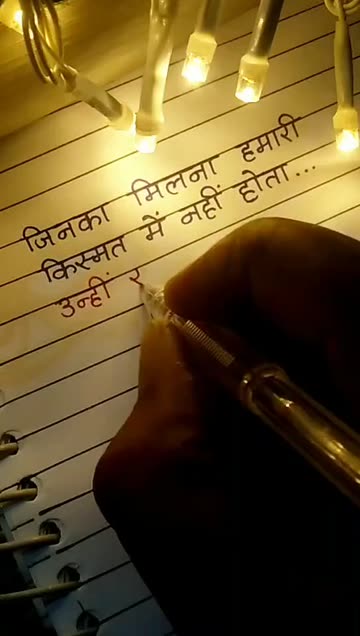 जिनका मिलना हमारी
किस्मत में नहीं होता...
उन्हीं